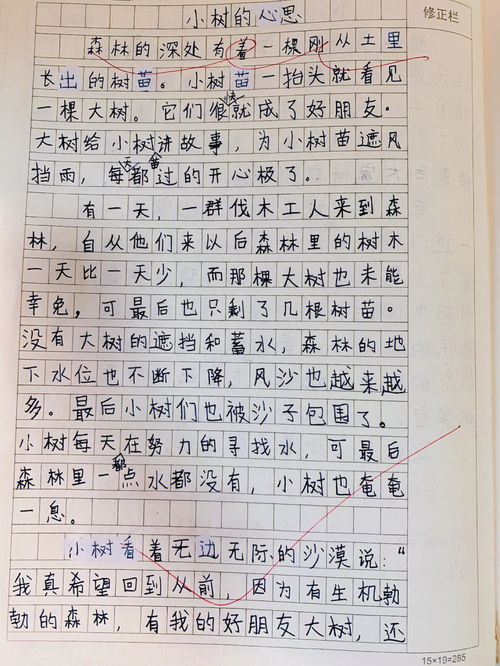 小树的心思
修正栏
森林的深处有着一棵刚从土里
长出的树苗。小树苗一抬头就看见
一棵大树。它们很快就成了好朋友。
大树给小树讲故事，为小树苗遮风
挡雨，每天都过的开心极了。
有一天，一群伐木工人来到森
林，自从他们来以后森林里的树木
一天比一天少，而那棵大树也未能
幸免，可最后也只剩了几根树苗。
没有大树的遮挡和蓄水，森林的地
下水位也不断下降，风沙也越来越
多。最后小树们也被沙子包围了。
小树每天在努力的寻找水，可最后
森林里一点水都没有，小树也奄奄
一息。
小树看着无边无际的沙漠说：“
我真希望回到从前，因为有生机勃
勃的森林，有我的好朋友大树，还
15×19=285